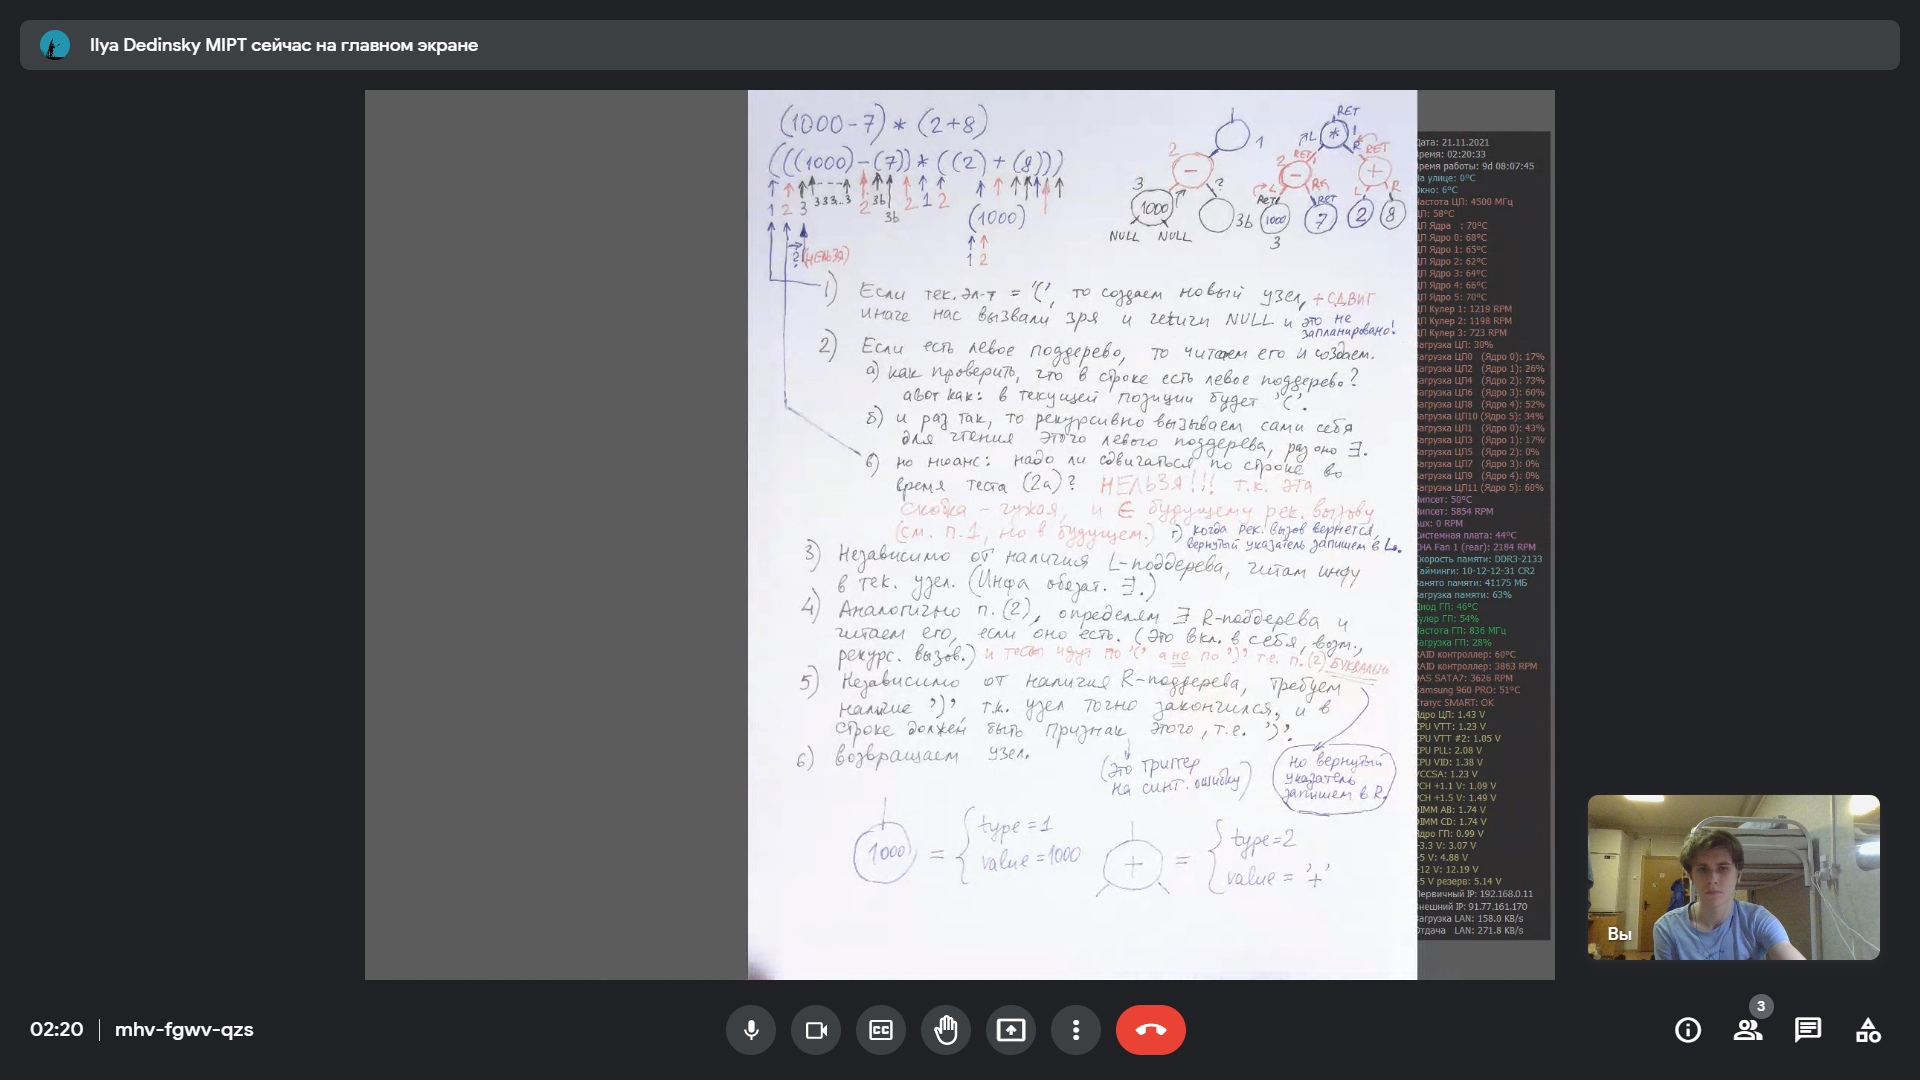 Ilya Dedinsky MIPT сейчас на главном экране
(1000-7)*(2+8)
(((1000)-(7))*((2)+(8)))
1 2 3 333..3 2 3b 3b 2 1 2
(1000)
1 2
? (НЕЛЬЗЯ)
1
2 -
3 1000 ? 3b
NULL NULL
RET
L * ! R
2 RET - RET +
L R L R
RET 1000 RET 7 2 8
3
1) Если тек. эл-т = '(', то создаем новый узел, + СДВИГ
иначе нас вызвали зря и return NULL и это не
запланировано!
2) Если есть левое поддерево, то читаем его и создаем.
а) как проверить, что в строке есть левое поддерево?
а вот как: в текущей позиции будет '('.
б) и раз так, то рекурсивно вызываем сами себя
для чтения этого левого поддерева, раз оно ∃.
в) но нюанс: надо ли сдвигаться по строке во
время теста (2а)? НЕЛЬЗЯ!!! т.к. эта
скобка - чужая, и ∈ будущему рек. вызову
(см. п.1, но в будущем.) г) когда рек. вызов вернется,
вернутый указатель запишем в L.
3) Независимо от наличия L-поддерева, читам инфу
в тек. узел. (Инфа обязат. ∃.)
4) Аналогично п.(2), определям ∃ R-поддерева и
читаем его, если оно есть. (Это вкл. в себя, возм.,
рекурс. вызов.) и тесты идут по '(' а не по ')' т.е. п.(2) БУКВАЛЬНО
5) Независимо от наличия R-поддерева, требуем
наличие ')', т.к. узел точно закончился, и в
строке должен быть признак этого, т.е. ')'.
6) возвращаем узел.
(это триггер
на синт. ошибку)
но вернутый
указатель
запишем в R.
1000 = { type = 1
value = 1000
+ = { type = 2
value = '+'
Дата: 21.11.2021
Время: 02:20:33
Время работы: 9d 08:07:45
На улице: 0°C
Окно: 6°C
Частота ЦП: 4500 МГц
ЦП: 58°C
ЦП Ядра : 70°C
ЦП Ядро 0: 68°C
ЦП Ядро 1: 65°C
ЦП Ядро 2: 62°C
ЦП Ядро 3: 64°C
ЦП Ядро 4: 66°C
ЦП Ядро 5: 70°C
ЦП Кулер 1: 1219 RPM
ЦП Кулер 2: 1198 RPM
ЦП Кулер 3: 723 RPM
Загрузка ЦП: 30%
Загрузка ЦП0 (Ядро 0): 17%
Загрузка ЦП2 (Ядро 1): 26%
Загрузка ЦП4 (Ядро 2): 73%
Загрузка ЦП6 (Ядро 3): 60%
Загрузка ЦП8 (Ядро 4): 52%
Загрузка ЦП10 (Ядро 5): 34%
Загрузка ЦП1 (Ядро 0): 43%
Загрузка ЦП3 (Ядро 1): 17%
Загрузка ЦП5 (Ядро 2): 0%
Загрузка ЦП7 (Ядро 3): 0%
Загрузка ЦП9 (Ядро 4): 0%
Загрузка ЦП11 (Ядро 5): 60%
Чипсет: 50°C
Чипсет: 5854 RPM
Aux: 0 RPM
Системная плата: 44°C
CHA Fan 1 (rear): 2184 RPM
Скорость памяти: DDR3-2133
Тайминги: 10-12-12-31 CR2
Занято памяти: 41175 МБ
Загрузка памяти: 63%
Диод ГП: 46°C
Кулер ГП: 54%
Частота ГП: 836 МГц
Загрузка ГП: 28%
RAID контроллер: 60°C
RAID контроллер: 3863 RPM
DAS SATA7: 3626 RPM
Samsung 960 PRO: 51°C
Статус SMART: OK
Ядро ЦП: 1.43 V
CPU VTT: 1.23 V
CPU VTT #2: 1.05 V
CPU PLL: 2.08 V
CPU VID: 1.38 V
VCCSA: 1.23 V
PCH +1.1 V: 1.09 V
PCH +1.5 V: 1.49 V
DIMM AB: 1.74 V
DIMM CD: 1.74 V
Ядро ГП: 0.99 V
+3.3 V: 3.07 V
+5 V: 4.88 V
+12 V: 12.19 V
+5 V резерв: 5.14 V
Первичный IP: 192.168.0.11
Внешний IP: 91.77.161.170
Загрузка LAN: 158.0 KB/s
Отдача LAN: 271.8 KB/s
Вы
02:20 | mhv-fgwv-qzs
CC
3